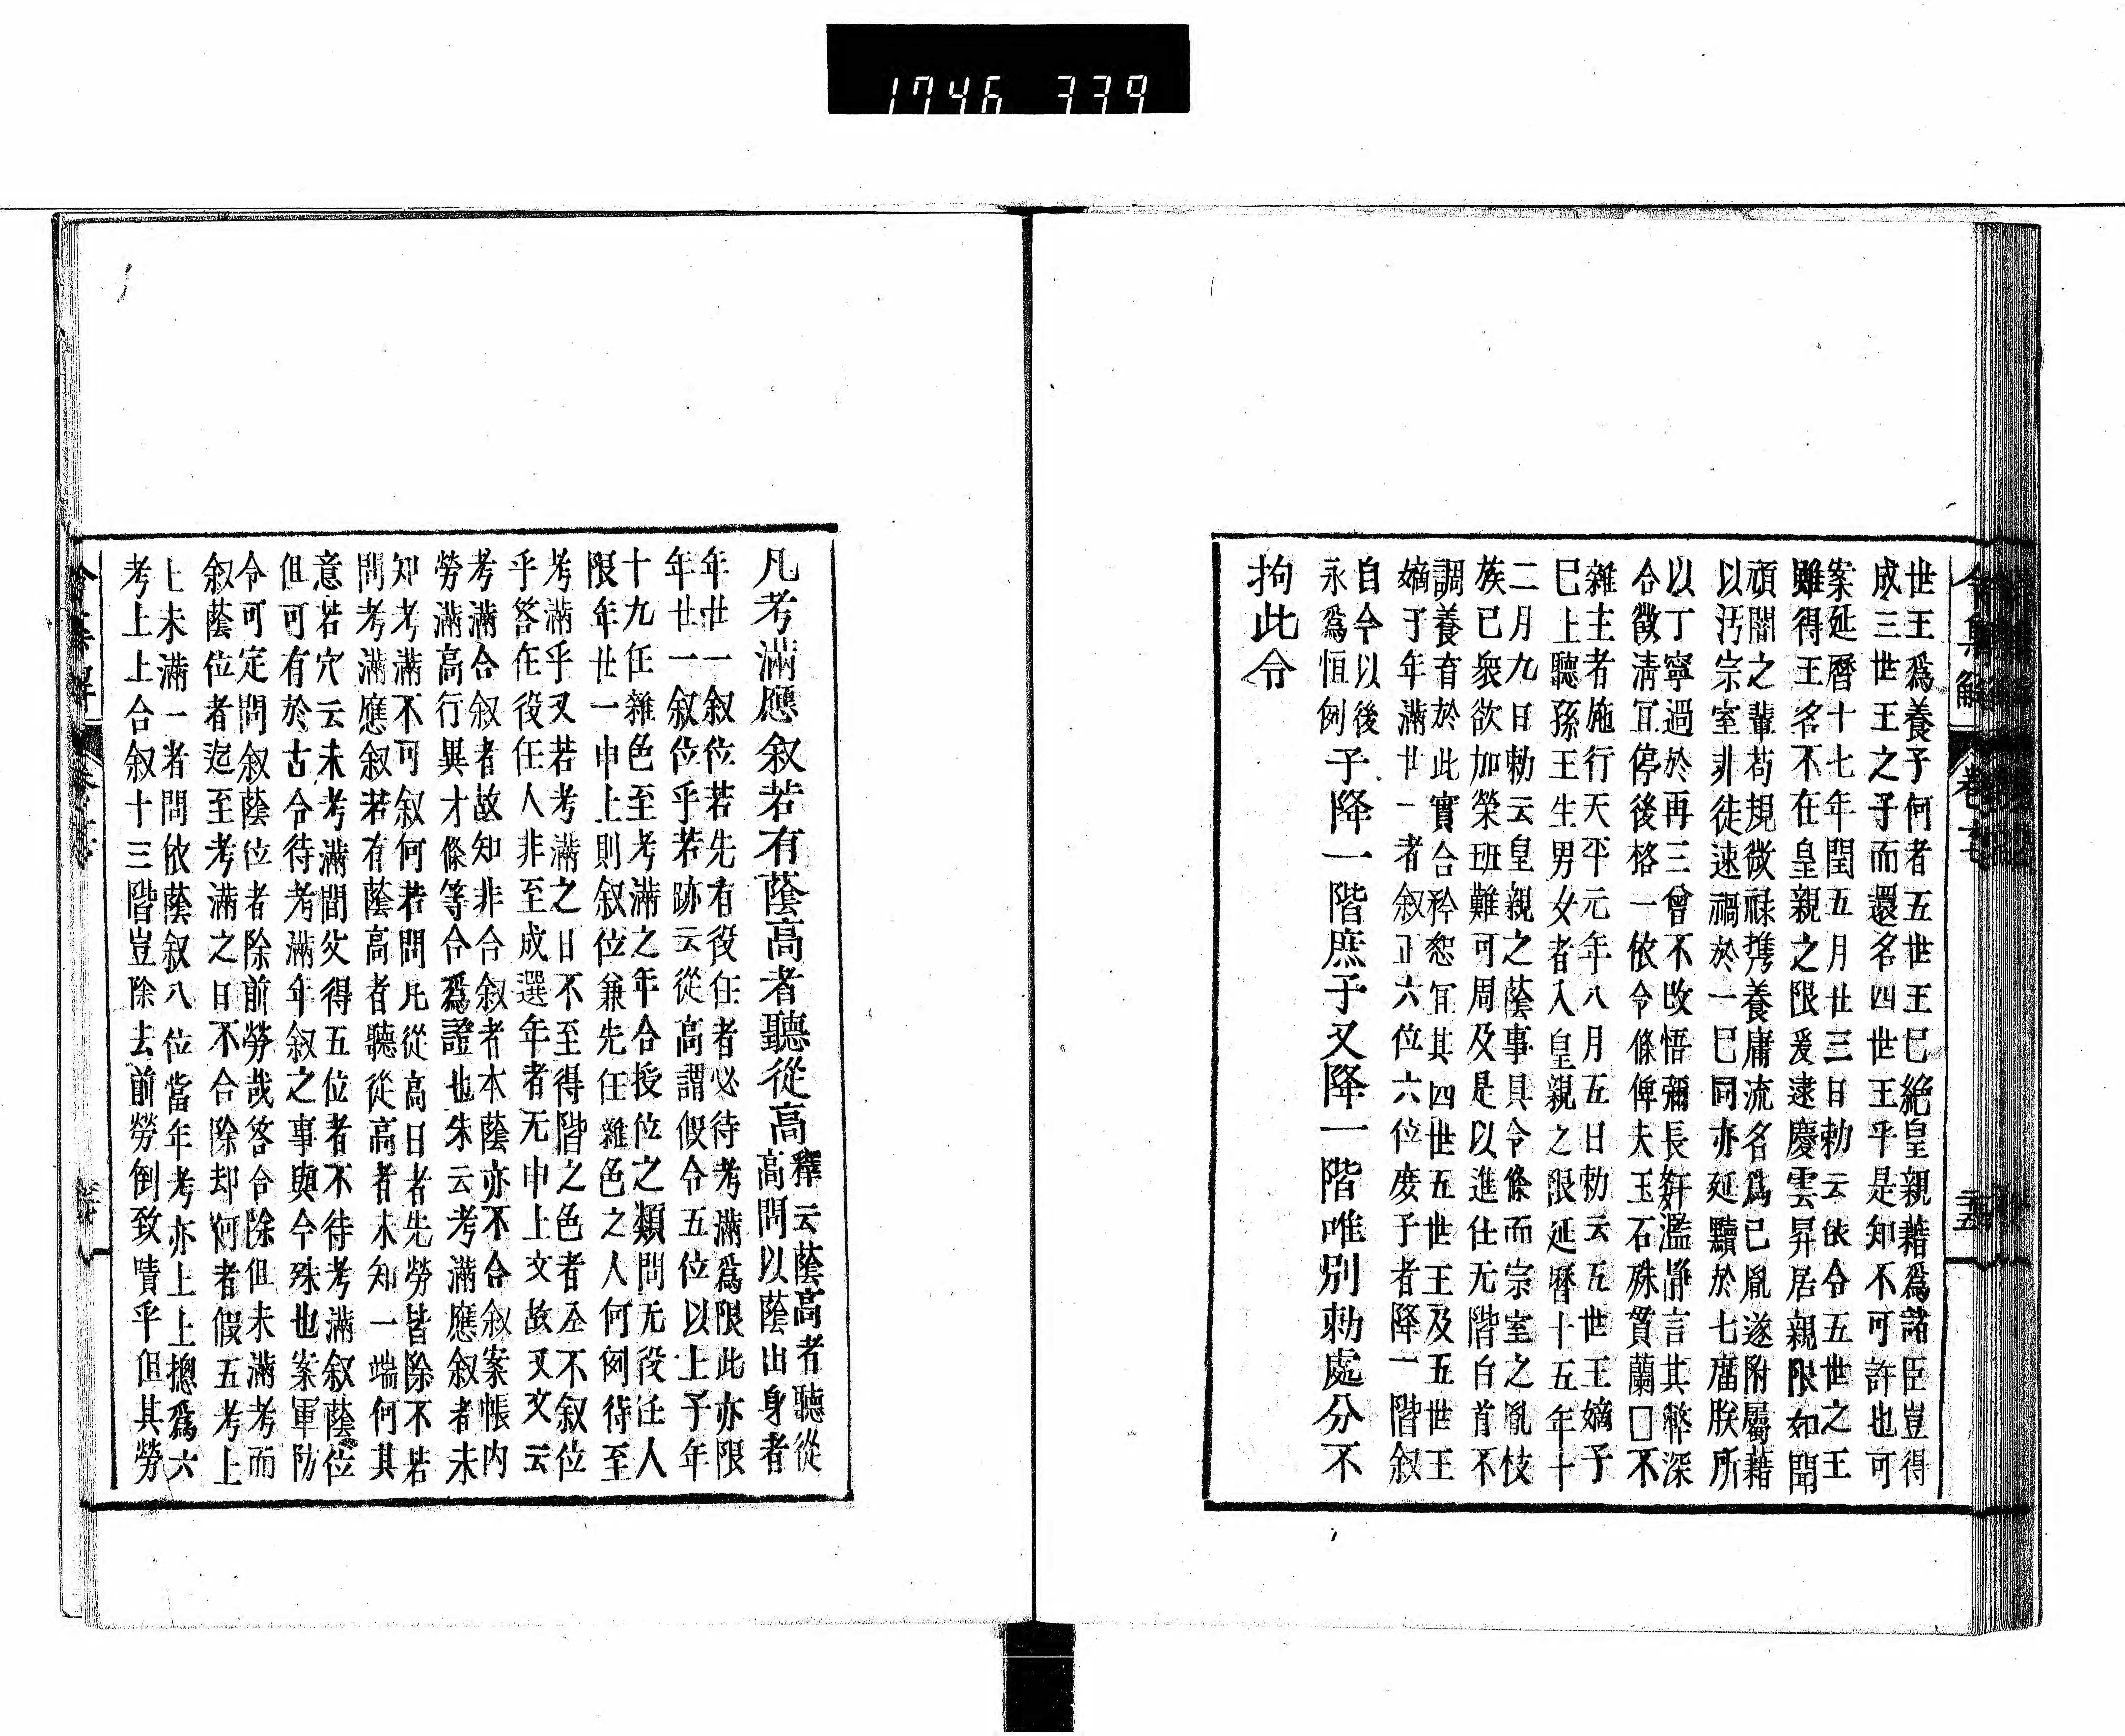 1746 339
令集解
卷十七
三五
世王爲養子何者五世王已絶皇親藉爲諸臣豈得
成三世王之子而還名四世王乎是知不可許也可
案延曆十七年閏五月廿三日勅云依令五世之王
雖得王名不在皇親之限爰逮慶雲昇居親限如聞
頑闇之輩苟規微禄携養庸流名爲己胤遂附屬藉
以汚宗室非徒速禍於一已同亦延黷於七庿朕所
以丁寧過於再三曾不改悟彌長姧濫静言其弊深
合徵清冝停後格一依令條俾夫玉石殊貫蘭□不
雜主者施行天平元年八月五日勅云五世王嫡子
已上聽孫王生男女者入皇親之限延曆十五年十
二月九日勅云皇親之蔭事具令條而宗室之胤枝
族已衆欲加榮班難可周及是以進仕无階白首不
調養育於此實合矜恕冝其四世五世王及五世王
嫡子年滿廿一者叙正六位六位庶子者降一階叙
自今以後
永爲恒例
子降一階庶子又降一階唯別勅處分不
拘此令
凡考滿應叙若有蔭高者聽從高
釋云蔭高者聽從
高問以蔭出身者
年廿一叙位若先有役任者必待考滿爲限此亦限
年廿一叙位乎若跡云從高謂假令五位以上子年
十九任雜色至考滿之年合授位之類問无役任人
限年廿一申上則叙位兼先任雜色之人何例待至
考滿乎又若考滿之日不至得階之色者丕不叙位
乎答在役任人非至成選年者无申上文故又文云
考滿合叙者故知非合叙者本蔭亦不合叙案帳内
勞滿高行異才條等合爲證也朱云考滿應叙者未
知考滿不可叙何若問凡從高日者先勞皆除不若
問考滿應叙若有蔭高者聽從高者未知一端何其
意若穴云未考滿間父得五位者不待考滿叙蔭位
但可有於古令待考滿年叙之事與今殊也案軍防
令可定問叙蔭位者除前勞哉答合除但未滿考而
叙蔭位者迄至考滿之日不合除却何者假五考上
上未滿一者問依蔭叙八位當年考亦上上摠爲六
考上上合叙十三階豈除去前勞倒致嘖乎但其勞
令集解